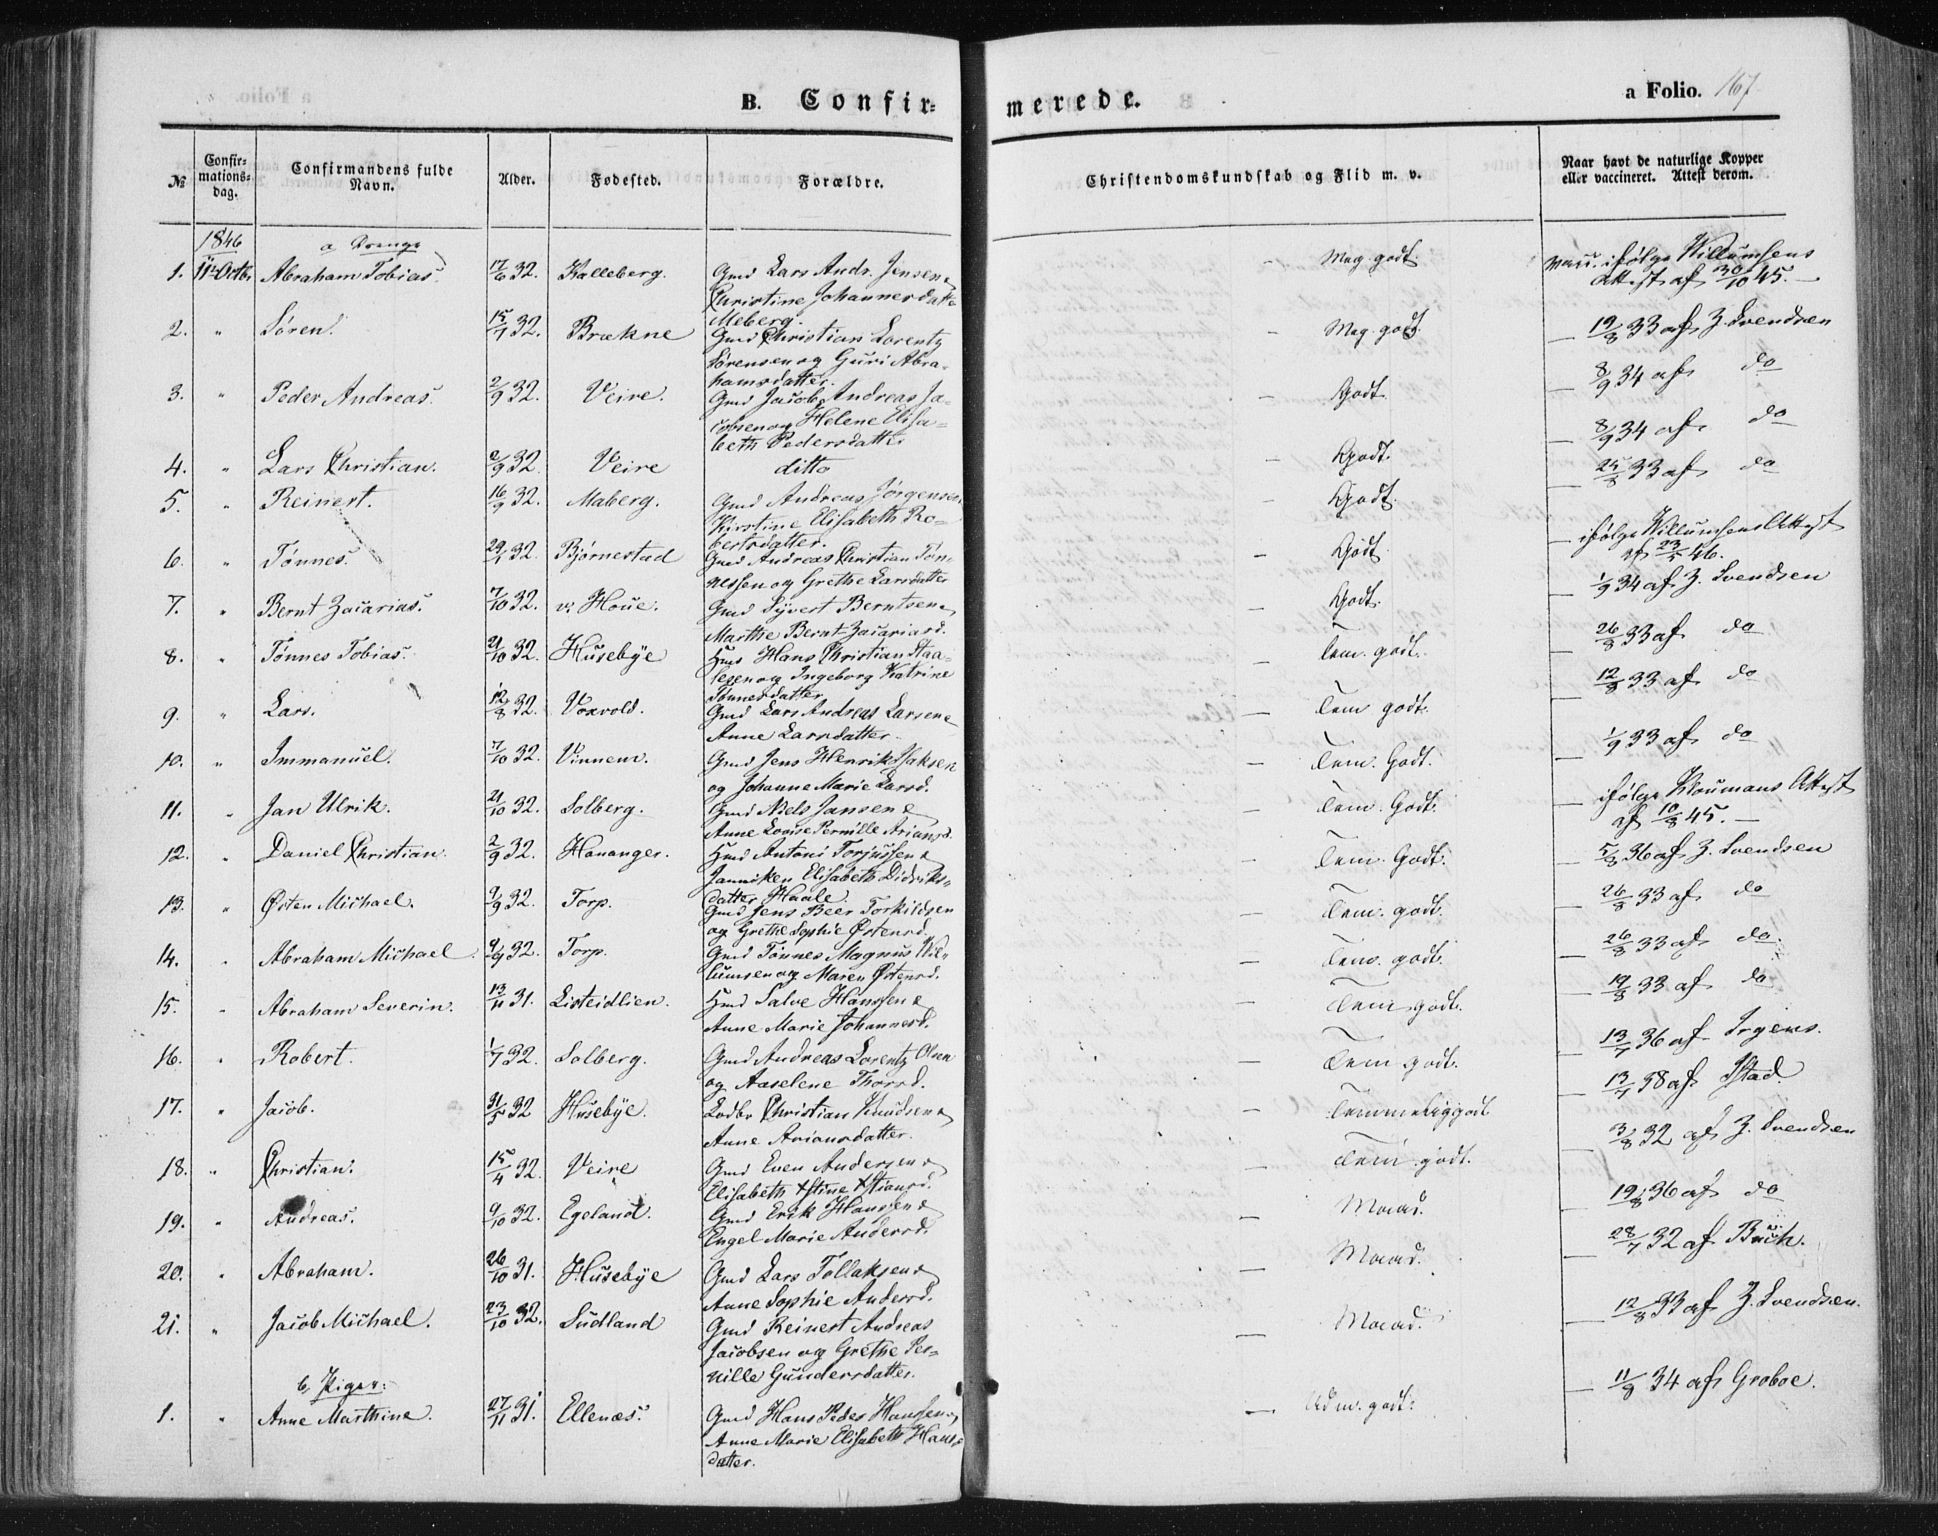 B. Confirmerede.
a Folio. 167.
№ Confirmationsdag. Confirmandens fulde Navn. Alder. Fødested. Forældre. Christendomskundskab og Flid m. v. Naar havt de naturlige Kopper eller vaccineret. Attest derom.
1846 a Drenge
1. 11te Octbr. Abraham Tobias. 17/6 32. Kalleberg. Gmd Lars Andr. Jensen, — Meg. godt. vacc. ifølge Willumsens
Christine Johannesdatter Attest af 30/10 45. —
Meberg.
2. " Søren. 15/7 32. Brækne Gmd Christian Lorentz — Meg. godt. — 19/8 33 af Z. Svendsen
Sørensen og Guri Abra-
hamsdatter.
3. " Peder Andreas. 2/9 32. Veire. Gmd Jacob Andreas Ja- — Godt. — 8/9 34 af do
cobsen og Helene Elisa-
beth Pedersdatter
4. " Lars Christian. 2/9 32. Veire ditto — Godt. — 8/9 34 af do
5. " Reinert. 16/9 32. Maberg. Gmd Andreas Jørgensen — Godt. — 25/8 33 af do
Kirstine Elisabeth Ro-
bertsdatter.
6. " Tønnes. Bjørnestad Gmd Andreas Christian Tøn- — Godt. — ifølge Willumsens Attest
nessen og Grethe Larsdatter af 23/5 46.
7. " Bernt Zacarias. 7/10 32. v. Houe. Gmd Syvert Berntsen, — Godt. — 1/9 34 af Z. Svendsen
Marthe Bernt Zacariasd.
8. " Tønnes Tobias. 21/10 32. Husebye Hmd Hans Christian Staa- — Tem. godt. — 26/8 33 af do
lesen og Ingeborg Katrine
Tønnesdatter
9. " Lars. 12/8 32. Voxvold. Gmd Lars Andreas Larsen — Tem godt. — 12/8 33 af do
Anne Larsdatter.
10. " Immanuel. 7/10 32. Vinnem. Gmd Jens Henrik Isaksen — Tem. Godt. — 1/9 33 af do
og Johanne Marie Larsd.
11. " Jan Ulrik. 21/10 32. Solberg. Gmd Niels Jansen — Tem. Godt. — ifølge Attest
Anne Lovise Pernille Ariansd. af 10/8 45. —
12. " Daniel Christian. 2/9 32. Hananger. Hmd Antoni Torjussen — Tem. Godt. — 5/8 36 af Z. Svendsen
Janniken Elisabeth Didriks-
datter Haale.
13. " Østen Michael. 9/9 32. Torp. Gmd Jens Beer Torkildsen — Tem. godt. — 26/8 33 af do
og Grethe Sophie Østensd.
14. " Abraham Michael 9/9 32. Torp. Gmd Tønnes Magnus Wil- — Tem. godt. — 26/8 33 af do.
lumsen og Maren Østensd.
15. " Abraham Severin. 13/11 31. Listeidlien. Hmd Salve Hanssen — Tem godt. — 19/8 33 af do
Anne Marie Johannesd.
16. " Robert. 1/7 32. Solberg. Gmd Andreas Lorentz Olsen — Tem godt. — 13/7 36 af Irgens.
og Aaselene Thorsd.
17. " Jacob. 31/5 32 Husebye. Lodbr Christian Knudsen — Temmelig godt — 13/7 38 af Stad.
Anne Ariansdatter.
18. " Christian. 15/4 32. Veire Gmd Even Andersen — Tem godt. — 3/8 32 af Z. Svendsen
Elisabeth Xstine Xstiansd.
19. " Andreas. 9/10 32. Egeland. Gmd Erik Hanssen — Maad. — 19/8 36 af do
Engel Marie Andersd.
20. " Abraham. 26/10 31. Husebye Gmd Lars Tollaksen — Maad. — 28/7 32 af Buch.
Anne Sophie Andersd.
21. " Jacob Michael. 23/10 32. Sudland Gmd Reinert Andreas — Maad. — 12/8 33 af Z. Svendsen.
Jacobsen og Grethe Per-
nille Gundersdatter.
b, Piger:
1. " Anne Marthine. 27/11 31. Ellenæs. Gmd Hans Peder Hanssen — Udm. godt. — 11/8 34 af Groboe.
Anne Marie Elisabeth Hans-
datter.